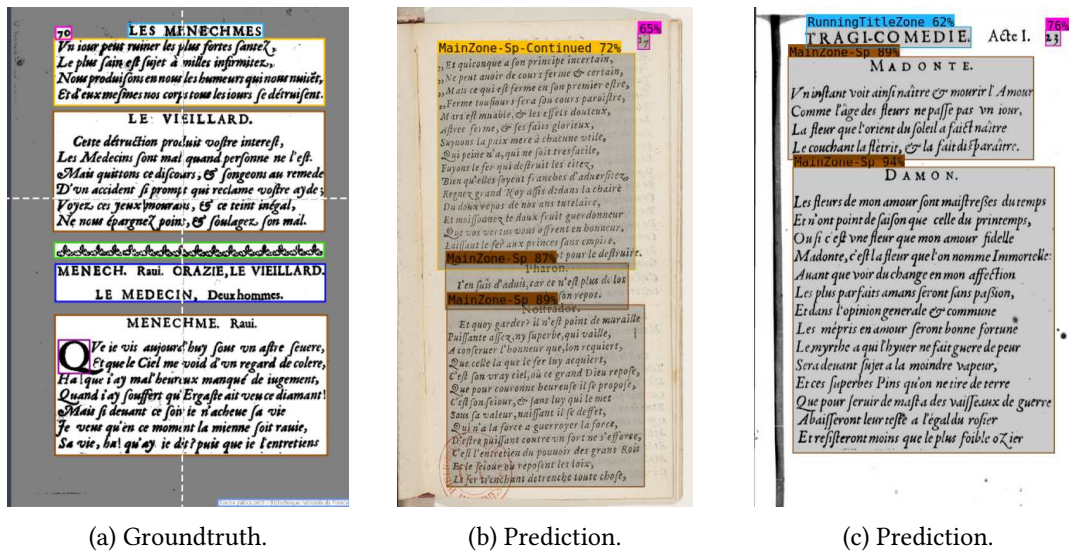 70
LES MENECHMES
Vn iour peut ruiner les plus fortes santez,
Le plus sain est sujet à milles infirmitez,
Nous produisons en nous les humeurs qui nous nuisẽt,
Et d'eux mesmes nos corps tous les iours se détruisent.
LE VIEILLARD.
Cette détruction produit vostre interest,
Les Medecins sont mal quand personne ne l'est.
Mais quittons ce discours, & songeons au remede
D'vn accident si prompt qui reclame vostre ayde;
Voyez ces yeux mourans, & ce teint inégal,
Ne nous épargnez point, & soulagez son mal.
MENECH. Raui. ORAZIE, LE VIEILLARD.
LE MEDECIN, Deux hommes.
MENECHME. Raui.
QVe ie vis aujourd'huy sous vn astre seuere,
Et que le Ciel me void d'vn regard de colere,
Ha! que i'ay mal'heureux manqué de iugement,
Quand i'ay souffert qu'Ergaste ait veu ce diamant!
Mais si deuant ce soir ie n'acheue sa vie
Je veux qu'en ce moment la mienne soit rauie,
Sa vie, ha! qu'ay ie dit? puis que ie l'entretiens
(a) Groundtruth.
65%
17
MainZone-Sp-Continued 72%
„Et quiconque a son principe incertain,
„Ne peut auoir de cours ferme & certain,
„Mais ce qui est ferme en son premier estre,
„Ferme tousiours sera son cours paroistre,
Mars est muable, & les effets douteux,
Astree ferme, & ses faits glorieux,
Suyuons la paix mere à chacune vtile,
Qui peine n'a, qui ne soit tresfacile,
Fuyons le fer qui destruit les citez,
Bien qu'elles soyent franches d'aduersitez,
Regnez grand Roy assis dedans la chaire
Du doux repos de nos ans tutelaire,
Et moissonnez le doux fruit guerdonneur
Que vos vertus vous offrent en honneur,
Laissant le fer aux princes sans empire,
pour le destruire.
MainZone-Sp 87%
Pharon.
I'en suis d'auis, car ce n'est plus de los
son repos.
MainZone-Sp 89%
Nostrador.
Et quoy garder? il n'est point de muraille
Puissante assez, ny superbe, qui vaille,
A conseruer l'honneur que lon requiert,
Que celle la que le fer luy acquiert,
C'est son vray ciel, où ce grand Dieu repose,
Que pour couronne heureuse il se propose,
C'est son seiour, & sans luy qui le met
Sous sa valeur, naissant il se deffet,
Qui n'a la force a guerroyer la force,
D'estre puissant contre vn fort ne s'efforce,
C'est l'entretien du pouuoir des grans Rois
Et le seiour où reposent les loix,
Le fer trenchant detrenche toute chose,
(b) Prediction.
RunningTitleZone 62%
76%
TRAGI-COMEDIE. Acte I. 23
MainZone-Sp 89%
MADONTE.
Vn instant voit ainsi naître & mourir l'Amour
Comme l'âge des fleurs ne passe pas vn iour,
La fleur que l'orient du soleil a faict naitre
Le couchant la flètrit, & la fait disparaitre.
MainZone-Sp 94%
DAMON.
Les fleurs de mon amour sont maistresses du temps
Et n'ont point de saison que celle du printemps,
Ou si c'est vne fleur que mon amour fidelle
Madonte, c'est la fleur que l'on nomme Immortelle:
Auant que voir du change en mon affection
Les plus parfaits amans seront sans passion,
Et dans l'opinion generale & commune
Les mépris en amour seront bonne fortune
Le myrthe a qui l'hyuer ne fait guere de peur
Sera deuant sujet a la moindre vapeur,
Et ces superbes Pins qu'on ne tire de terre
Que pour seruir de mast a des vaisseaux de guerre
Abaisseront leur teste a l'égal du rosier
Et resisteront moins que le plus foible oZier
(c) Prediction.